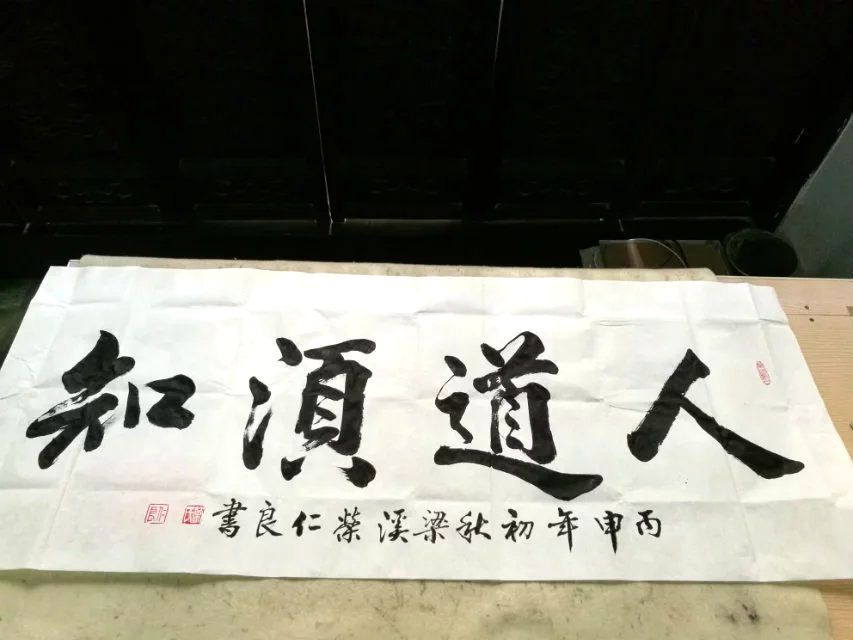 人道須知
丙申年初秋梁溪榮仁良書